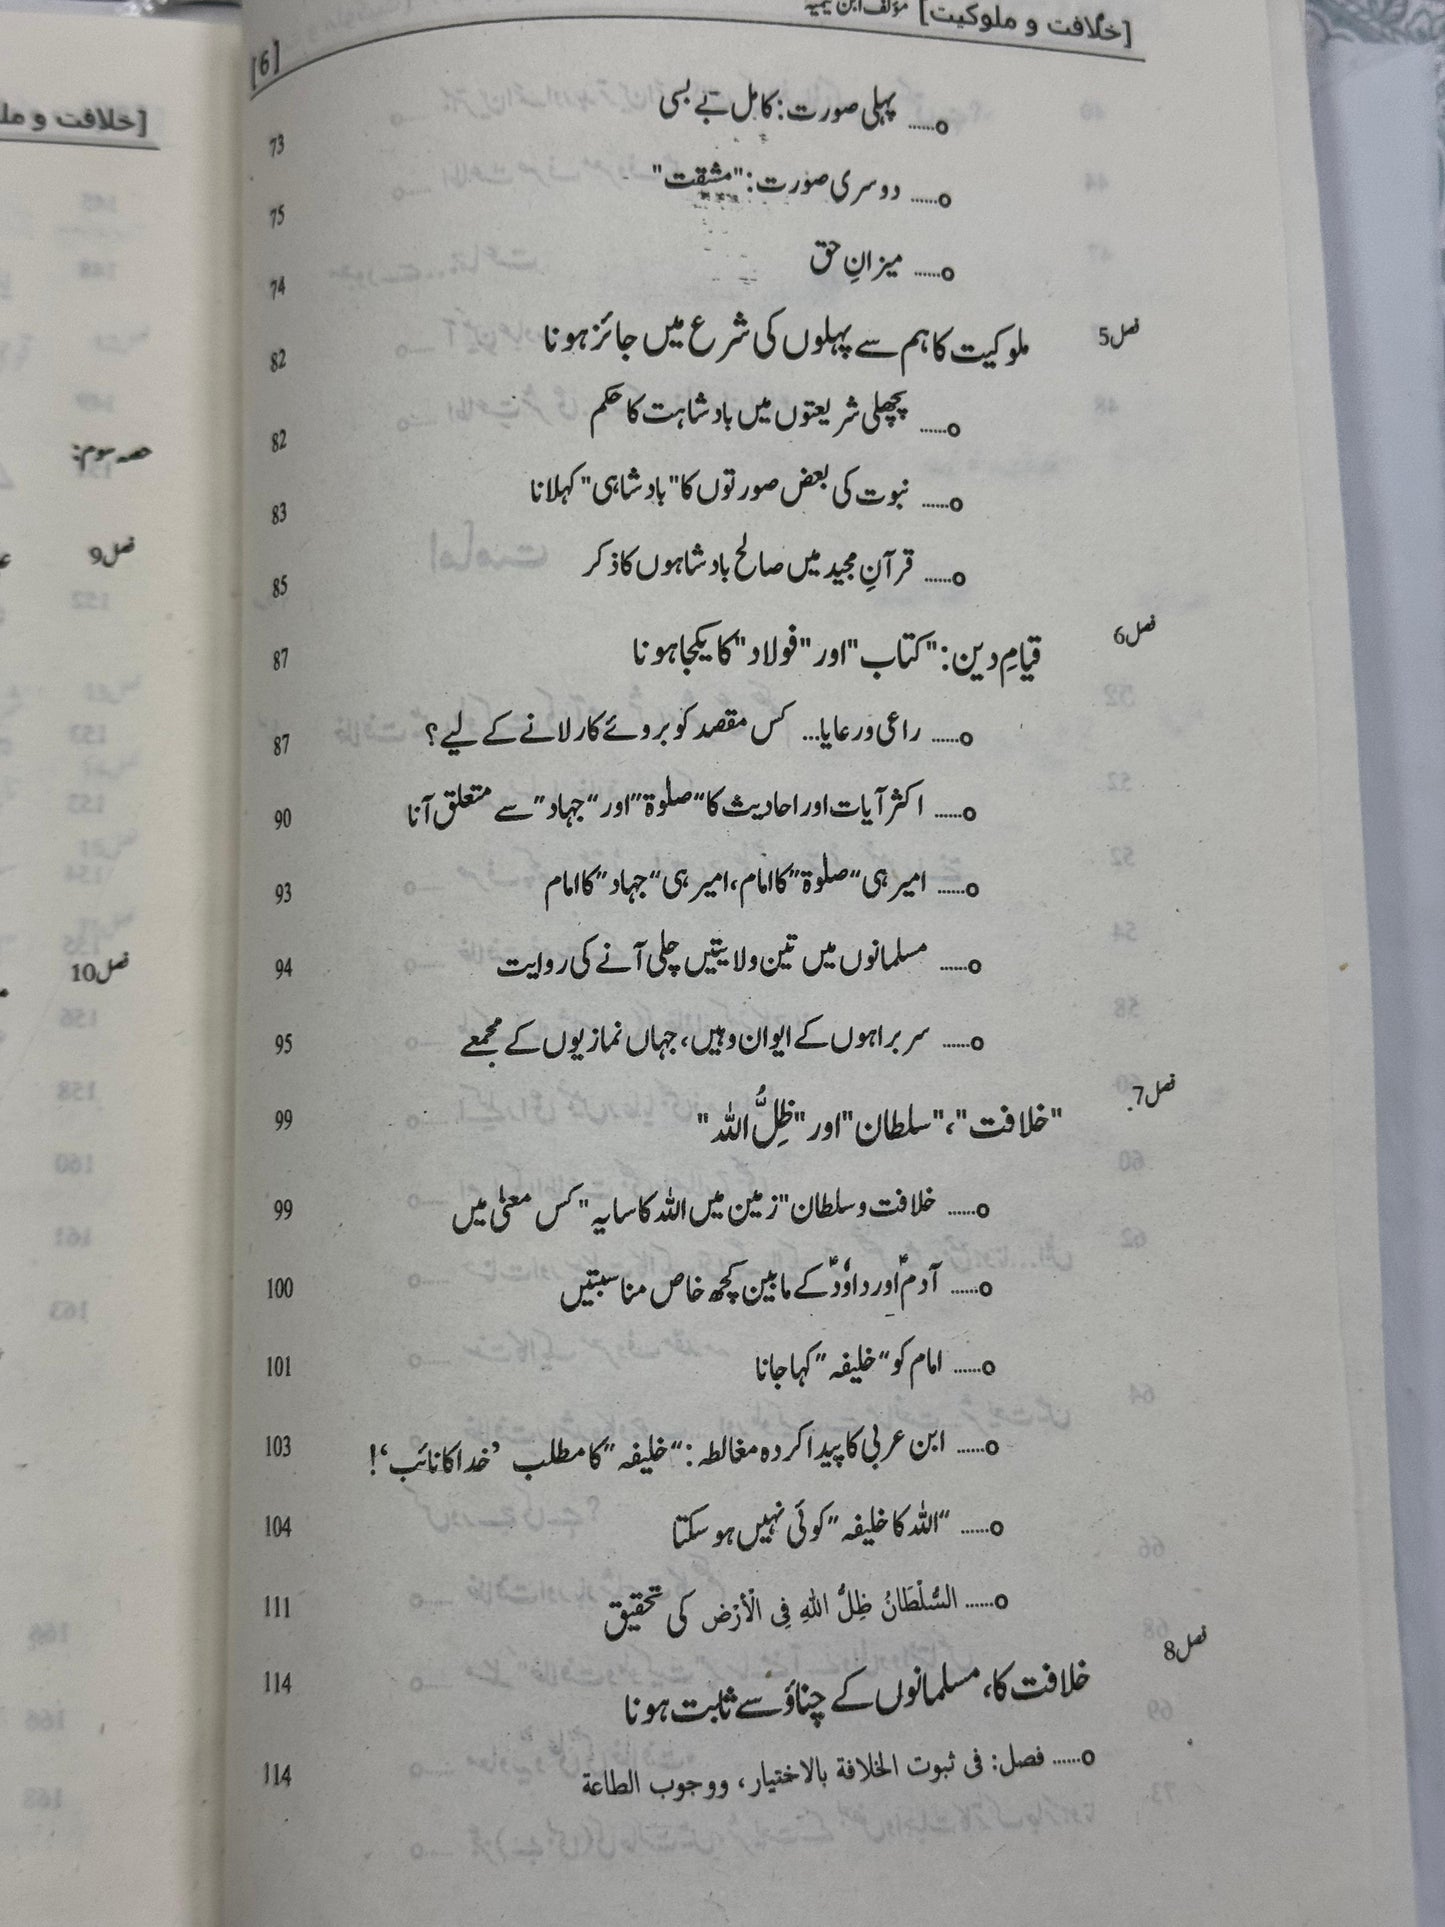 [خلافت و ملوکیت] مؤلف ابن تیمیہ
[6]
o...... پہلی صورت: کامل بے بسی 73
o...... دوسری صورت: "مشقت" 75
o...... میزانِ حق 74
فصل 5 ملوکیت کا ہم سے پہلوں کی شرع میں جائز ہونا 82
o...... پچھلی شریعتوں میں بادشاہت کا حکم 82
o...... نبوت کی بعض صورتوں کا "بادشاہی" کہلانا 83
o...... قرآنِ مجید میں صالح بادشاہوں کا ذکر 85
فصل 6 قیامِ دین: "کتاب" اور "فولاد" کا یکجا ہونا 87
o...... راعی و رعایا... کس مقصد کو بروئے کار لانے کے لیے؟ 87
o...... اکثر آیات اور احادیث کا "صلوۃ" اور "جہاد" سے متعلق آنا 90
o...... امیر ہی "صلوۃ" کا امام، امیر ہی "جہاد" کا امام 93
o...... مسلمانوں میں تین ولایتیں چلی آنے کی روایت 94
o...... سربراہوں کے ایوان وہیں، جہاں نمازیوں کے مجمعے 95
فصل 7 "خلافت"، "سلطان" اور "ظِلُّ اللہ" 99
o...... خلافت و سلطان "زمین میں اللہ کا سایہ" کس معنیٰ میں 99
o...... آدمؑ اور داوٗدؑ کے مابین کچھ خاص مناسبتیں 100
o...... امام کو "خلیفہ" کہا جانا 101
o...... ابن عربی کا پیدا کردہ مغالطہ: "خلیفہ" کا مطلب 'خدا کا نائب'! 103
o...... "اللہ کا خلیفہ" کوئی نہیں ہو سکتا 104
o...... السُّلْطَانُ ظِلُّ اللهِ فِی الْأَرْض کی تحقیق 111
فصل 8 خلافت کا، مسلمانوں کے چناؤ سے ثابت ہونا 114
o...... فصل: فی ثبوت الخلافة بالاختیار، ووجوب الطاعة 114
[خلافت و ملو
حصہ سوم:
فصل 9
فصل 10